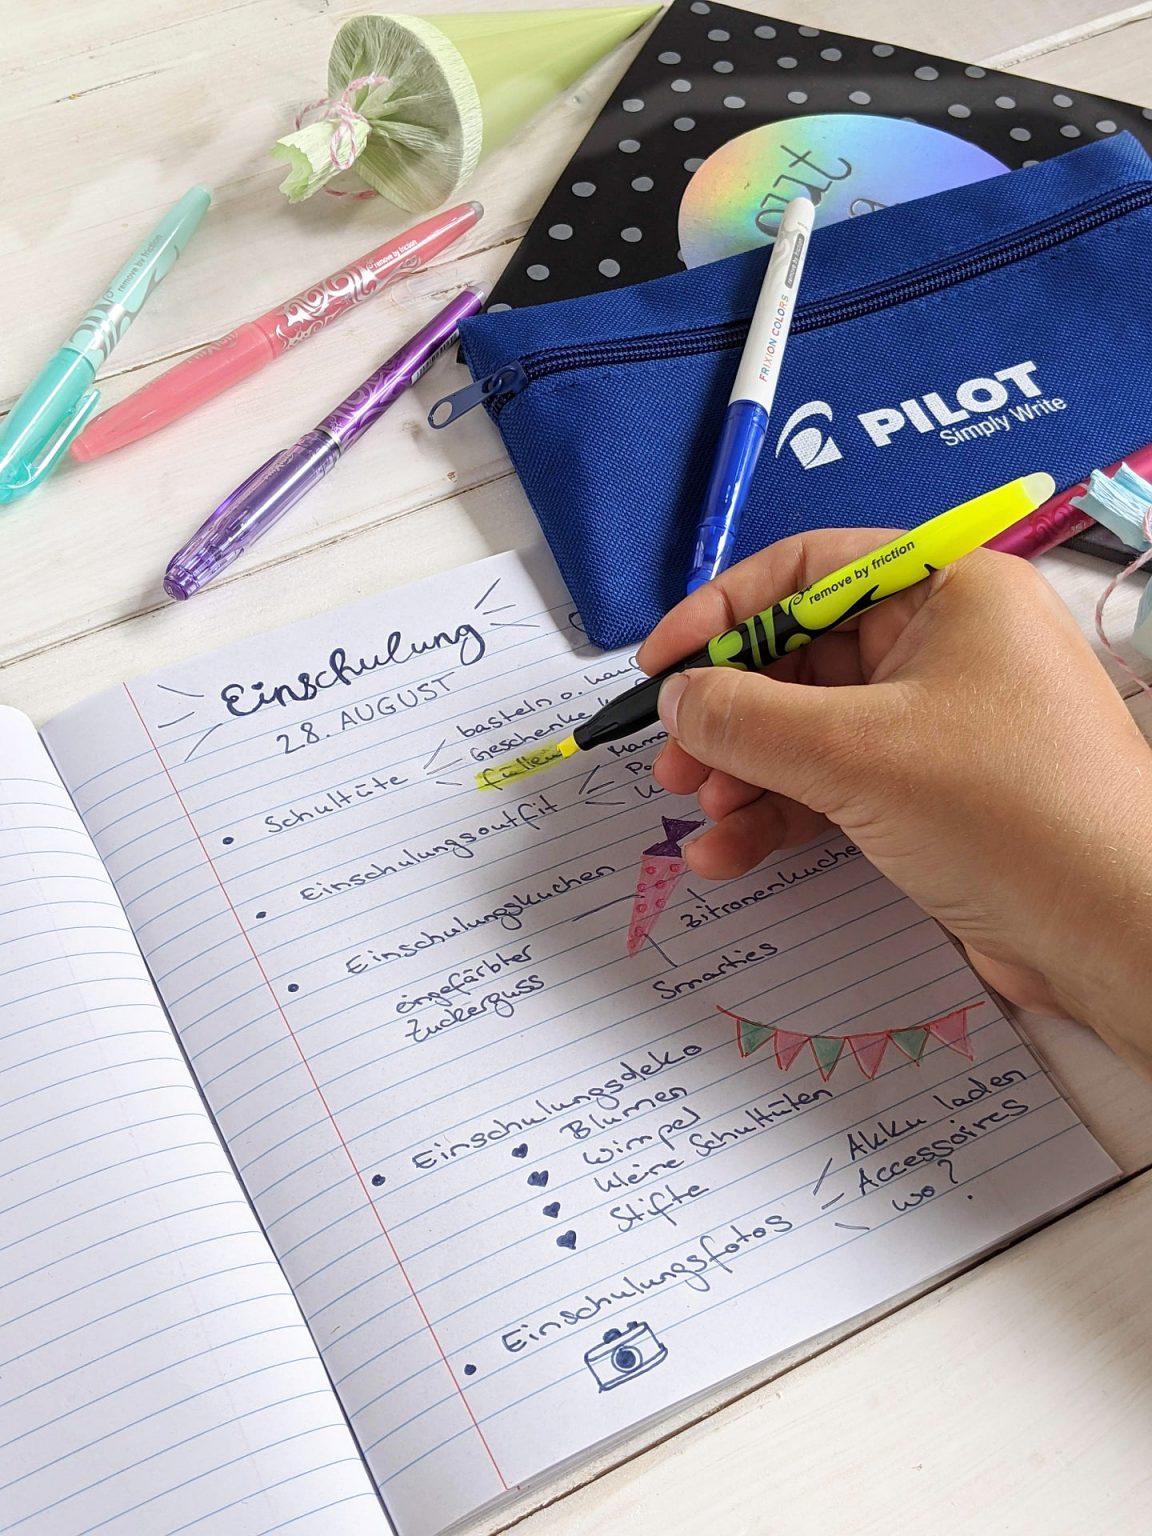 out
remove by friction
remove by friction
FRIXION COLORS
PILOT
Simply Write
remove by friction
Einschulung
28. AUGUST
basteln o.
Geschenke
füllen
Schultüte
Mama
Einschulungsoutfit
Einschulungskuchen
Zitronenkuchen
eingefärbter
Zuckerguss
Smarties
Einschulungsdeko
Blumen
Wimpel
kleine Schultüten
Stifte
Akku laden
Accessoires
wo?
Einschulungsfotos